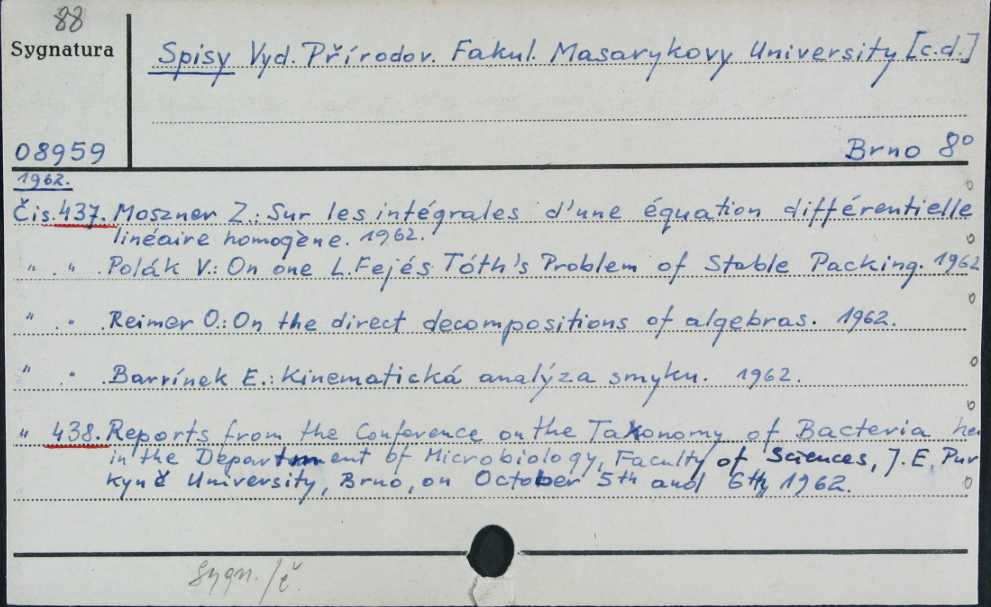 88
Sygnatura
Spisy Vyd. Přírodov. Fakul. Masarykovy University [c.d.]
08959
Brno 8º
1962.
Čis. 437. Moszner Z.: Sur les intégrales d'une équation différentielle
linéaire homogène. 1962.
" " Polák V.: On one L. Fejés Tóth's Problem of Stable Packing. 1962
" " Reimer O.: On the direct decompositions of algebras. 1962.
" " Barvínek E.: Kinematická analýza smyku. 1962.
" 438. Reports from the Conference on the Taxonomy of Bacteria he
in the Department of Microbiology, Faculty of Sciences, J. E. Pur
kyně University, Brno, on October 5th and 6th 1962.
Sygn. / č.